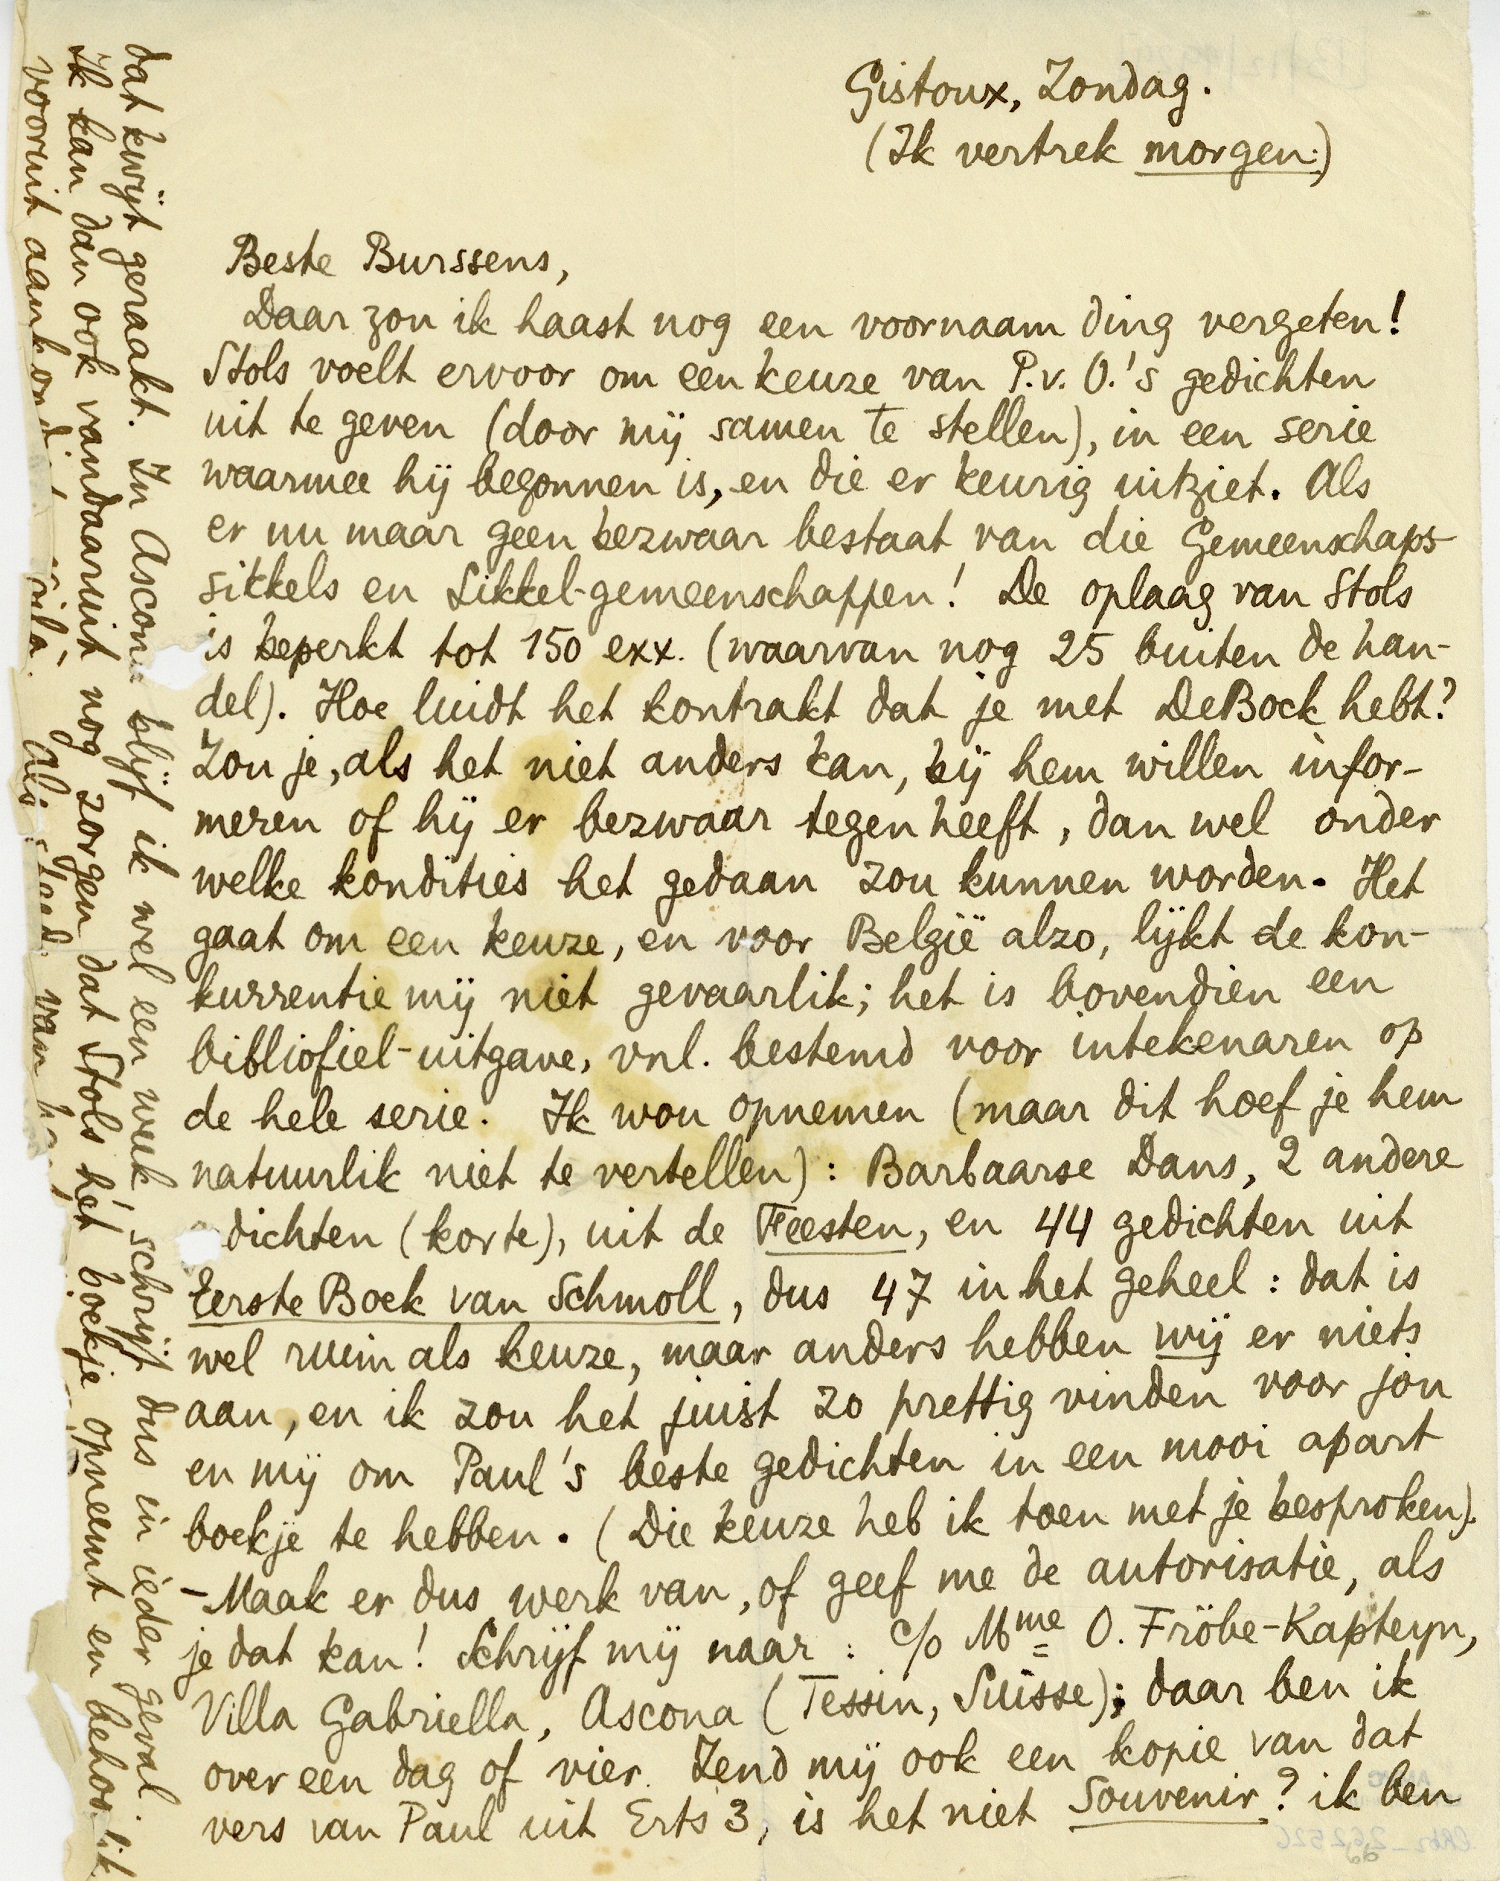 Gistoux, Zondag.
(Ik vertrek morgen.)
Beste Burssens,
Daar zou ik haast nog een voornaam ding vergeten!
Stols voelt ervoor om een keuze van P.v.O.'s gedichten
uit te geven (door mij samen te stellen), in een serie
waarmee hij begonnen is, en die er keurig uitziet. Als
er nu maar geen bezwaar bestaat van die Gemeenschaps-
sikkels en Sikkel-gemeenschappen! De oplaag van Stols
is beperkt tot 150 exx. (waarvan nog 25 buiten de han-
del). Hoe luidt het kontrakt dat je met De Bock hebt?
Zou je, als het niet anders kan, bij hem willen infor-
meren of hij er bezwaar tegen heeft, dan wel onder
welke kondities het gedaan zou kunnen worden. Het
gaat om een keuze, en voor België alzo, lijkt de kon-
kurrentie mij niet gevaarlik; het is bovendien een
bibliofiel-uitgave, vnl. bestemd voor intekenaren op
de hele serie. Ik wou opnemen (maar dit hoef je hem
natuurlik niet te vertellen): Barbaarse Dans, 2 andere
dichten (korte), uit de Feesten, en 44 gedichten uit
Eerste Boek van Schmoll, dus 47 in het geheel: dat is
wel ruim als keuze, maar anders hebben wij er niets
aan, en ik zou het juist zo prettig vinden voor jou
en mij om Paul's beste gedichten in een mooi apart
boekje te hebben. (Die keuze heb ik toen met je besproken).
- Maak er dus werk van, of geef me de autorisatie, als
je dat kan! Schrijf mij naar: c/o Mme O. Fröbe-Kapteyn,
Villa Gabriella, Ascona (Tessin, Suisse); daar ben ik
over een dag of vier. Zend mij ook een kopie van dat
vers van Paul uit Erts 3, is het niet Souvenir? ik ben
dat kwijt geraakt. In Ascona blijf ik wel een week, schrijf dus in ieder geval.
Ik kan dan ook vandaaruit nog zorgen dat Stols hét boekje opneemt en behoorlik
vooruit aankon
Als van